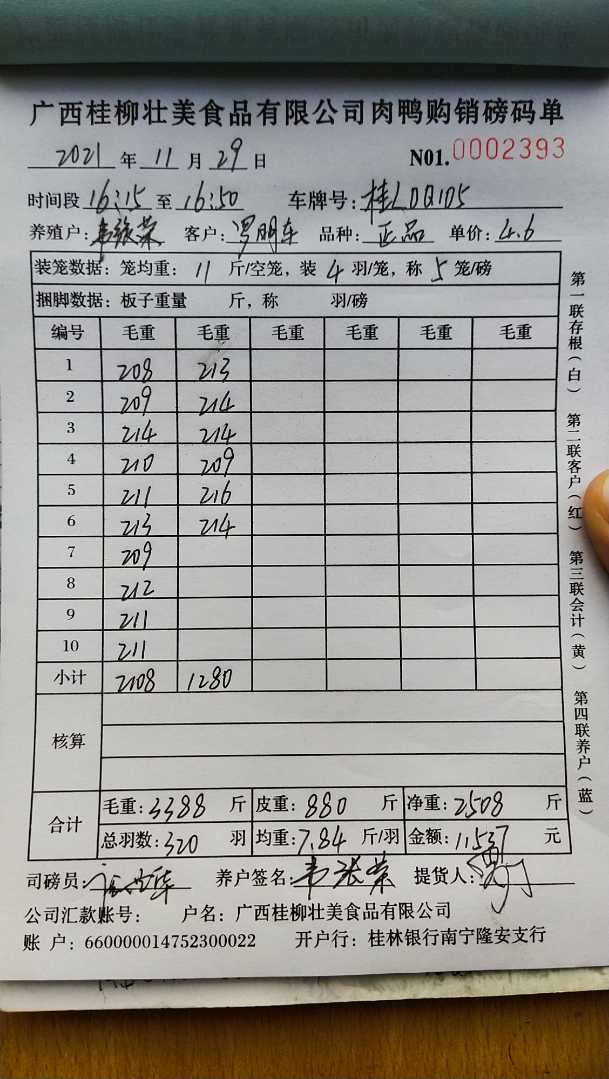 广西桂柳壮美食品有限公司肉鸭购销磅码单
2021 年 11 月 29 日 N01.0002393
时间段 16:15 至 16:50 车牌号: 桂LDQ105
养殖户: 韦张荣 客户: 罗朋车 品种: 正品 单价: 4.6
装笼数据: 笼均重: 11 斤/空笼, 装 4 羽/笼, 称 5 笼/磅
捆脚数据: 板子重量 斤, 称 羽/磅
编号 毛重 毛重 毛重 毛重 毛重 毛重
1 208 213
2 209 214
3 214 214
4 210 209
5 211 216
6 213 214
7 209
8 212
9 211
10 211
小计 2108 1280
核算
合计 毛重: 3388 斤 皮重: 880 斤 净重: 2508 斤
总羽数: 320 羽 均重: 7.84 斤/羽 金额: 11537 元
司磅员: 养户签名: 韦张荣 提货人:
公司汇款账号: 户名: 广西桂柳壮美食品有限公司
账 户: 660000014752300022 开户行: 桂林银行南宁隆安支行
第一联存根(白) 第二联客户(红) 第三联会计(黄) 第四联养户(蓝)